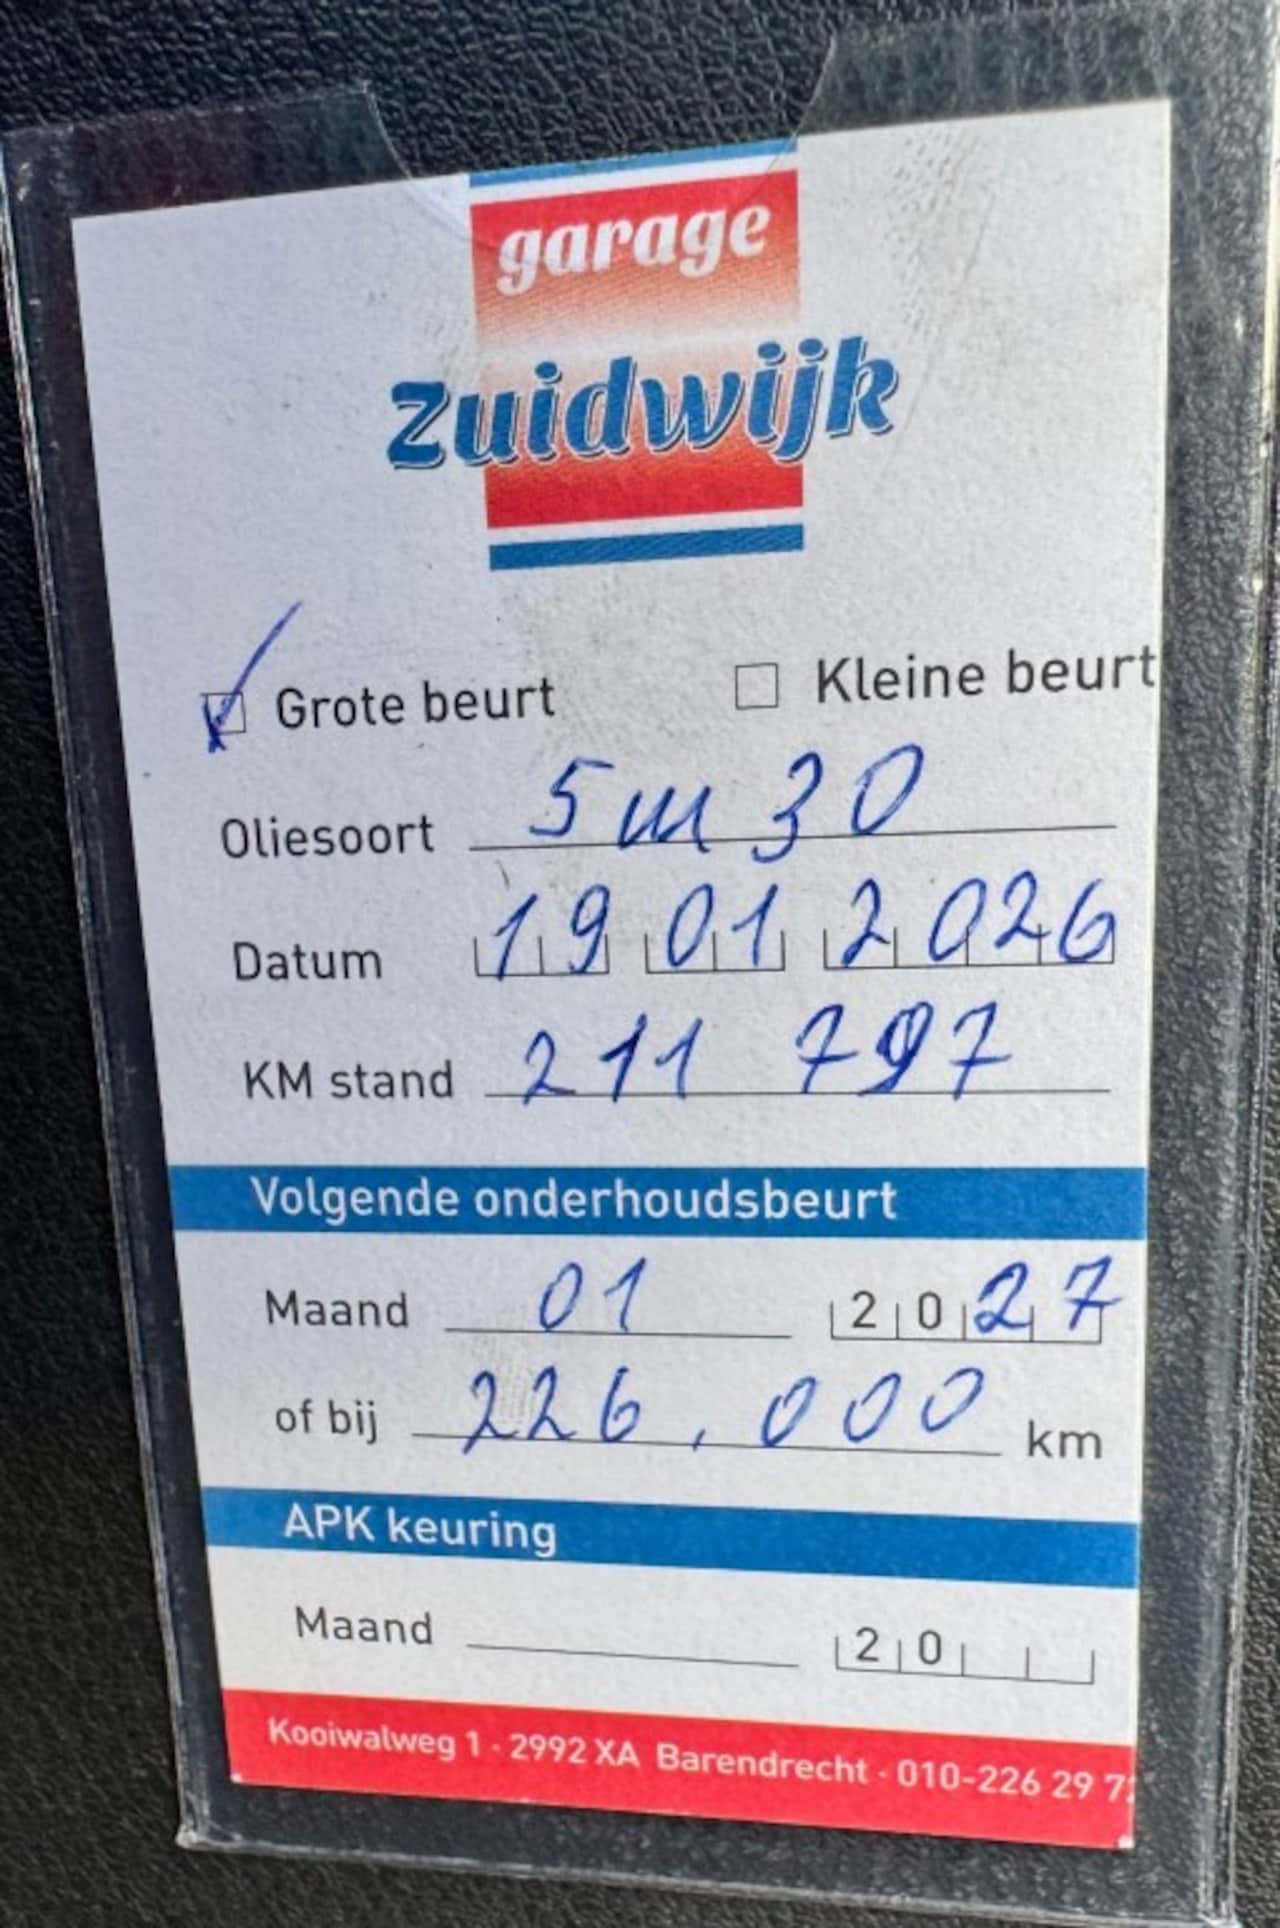 garage
Zuidwijk
Grote beurt Kleine beurt
Oliesoort 5W30
Datum 19 01 2026
KM stand 211 797
Volgende onderhoudsbeurt
Maand 01 2027
of bij 226.000 km
APK keuring
Maand 20
Kooiwalweg 1 · 2992 XA Barendrecht · 010-226 29 7